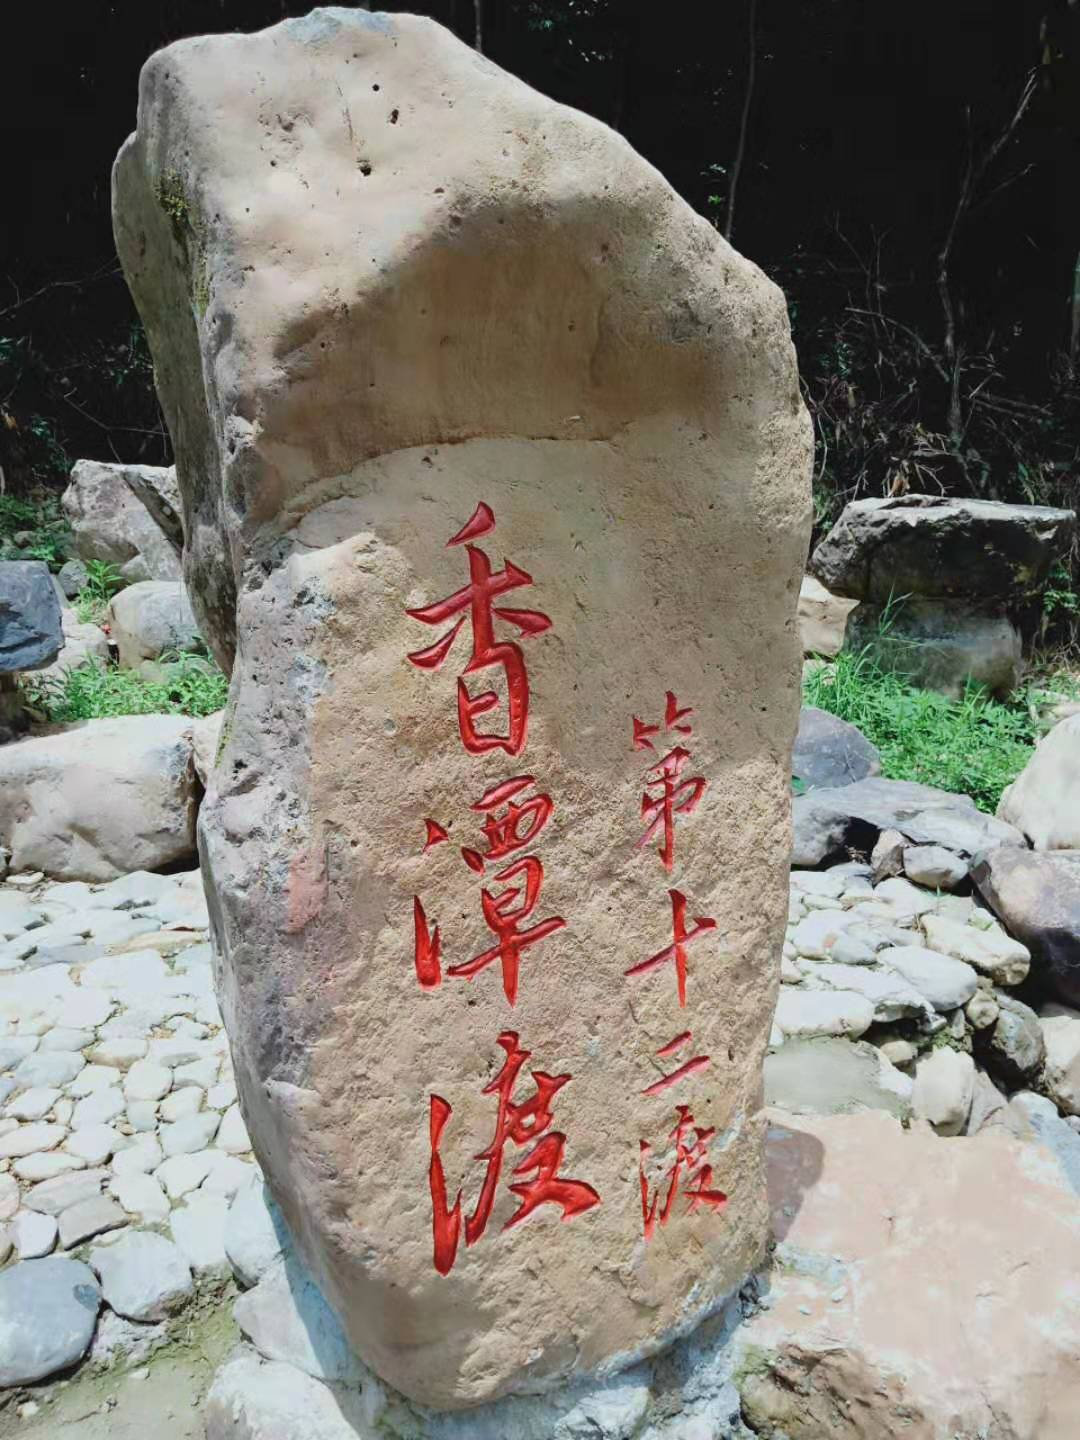 第十二渡
香潭渡